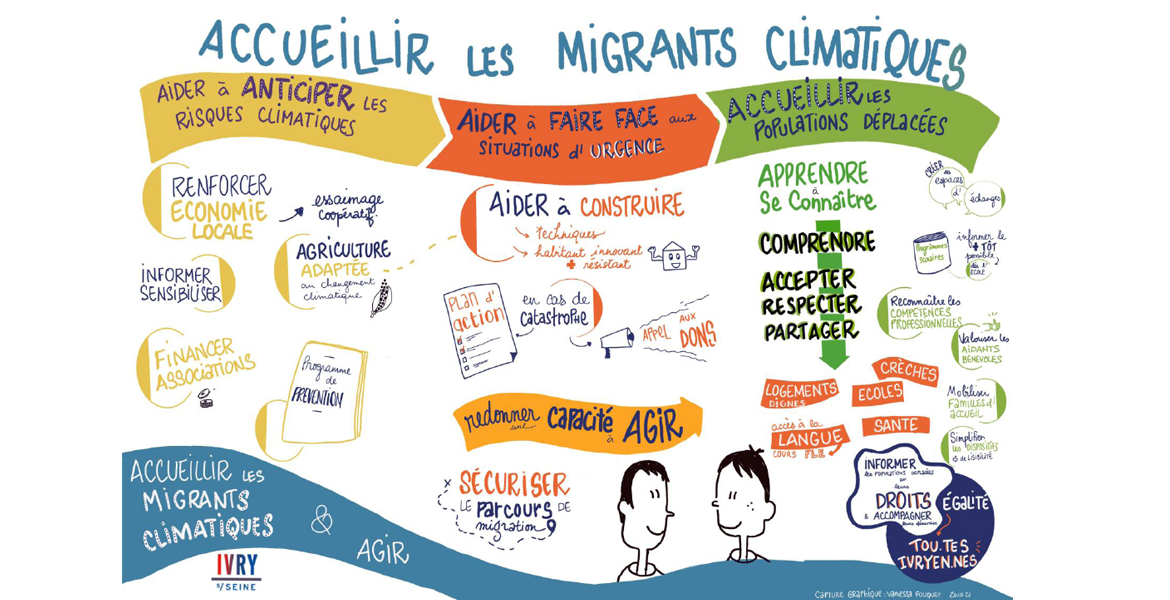 ACCUEILLIR LES MIGRANTS CLIMATIQUES
AIDER à ANTICIPER LES
RISQUES CLIMATIQUES
RENFORCER
ECONOMIE
LOCALE
essaimage
coopératif
INFORMER
SENSIBILISER
AGRICULTURE
ADAPTÉE
au changement
climatique
FINANCER
ASSOCIATIONS
Programme
de
PRÉVENTION
AIDER à FAIRE FACE aux
SITUATIONS d'URGENCE
AIDER à CONSTRUIRE
techniques
habitant innovant
+ résistant
PLAN d'
action
en cas de
catastrophe
APPEL AUX
DONS
redonner une CAPACITÉ à AGIR
SÉCURISER
LE PARCOURS DE
migration
ACCUEILLIR LES
POPULATIONS DÉPLACÉES
APPRENDRE
à
Se Connaître
COMPRENDRE
ACCEPTER
RESPECTER
PARTAGER
CRÉER des
espaces
d'
échanges
Programmes
scolaires
informer le
+ TÔT
possible
dès l'
ECOLE
Reconnaître les
COMPÉTENCES
PROFESSIONNELLES
Valoriser les
AIDANTS
BÉNÉVOLES
Mobiliser
FAMILLES d'
ACCUEIL
Simplifier
les DISPOSITIFS
+ de LISIBILITÉ
LOGEMENTS
DIGNES
CRÈCHES
ECOLES
accès à la
LANGUE
COURS FLE
SANTE
INFORMER
les POPULATIONS
sur
leurs
DROITS
& ACCOMPAGNER
leurs démarches
ÉGALITÉ
TOU.TES
IVRYEN.NES
ACCUEILLIR LES
MIGRANTS
CLIMATIQUES
& AGIR
IVRY
S/SEINE
CAPTURE GRAPHIQUE : VANESSA FOUQUET